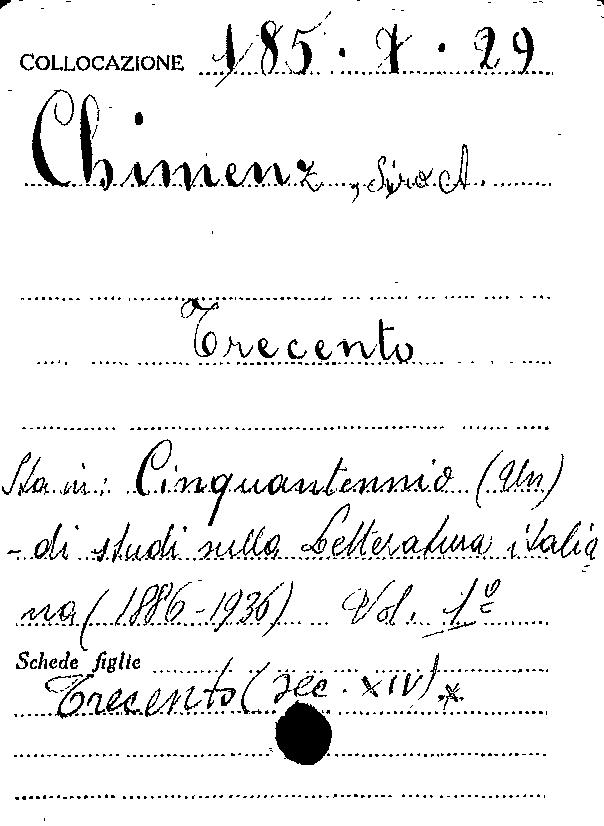 COLLOCAZIONE 185. 7. 29
Chimenz, Siro A.
Trecento
Sta in: Cinquantennio (Un)
- di studi sulla Letteratura italia
na (1886-1936) Vol. 1º
Schede figlie
Trecento (sec. XIV).*